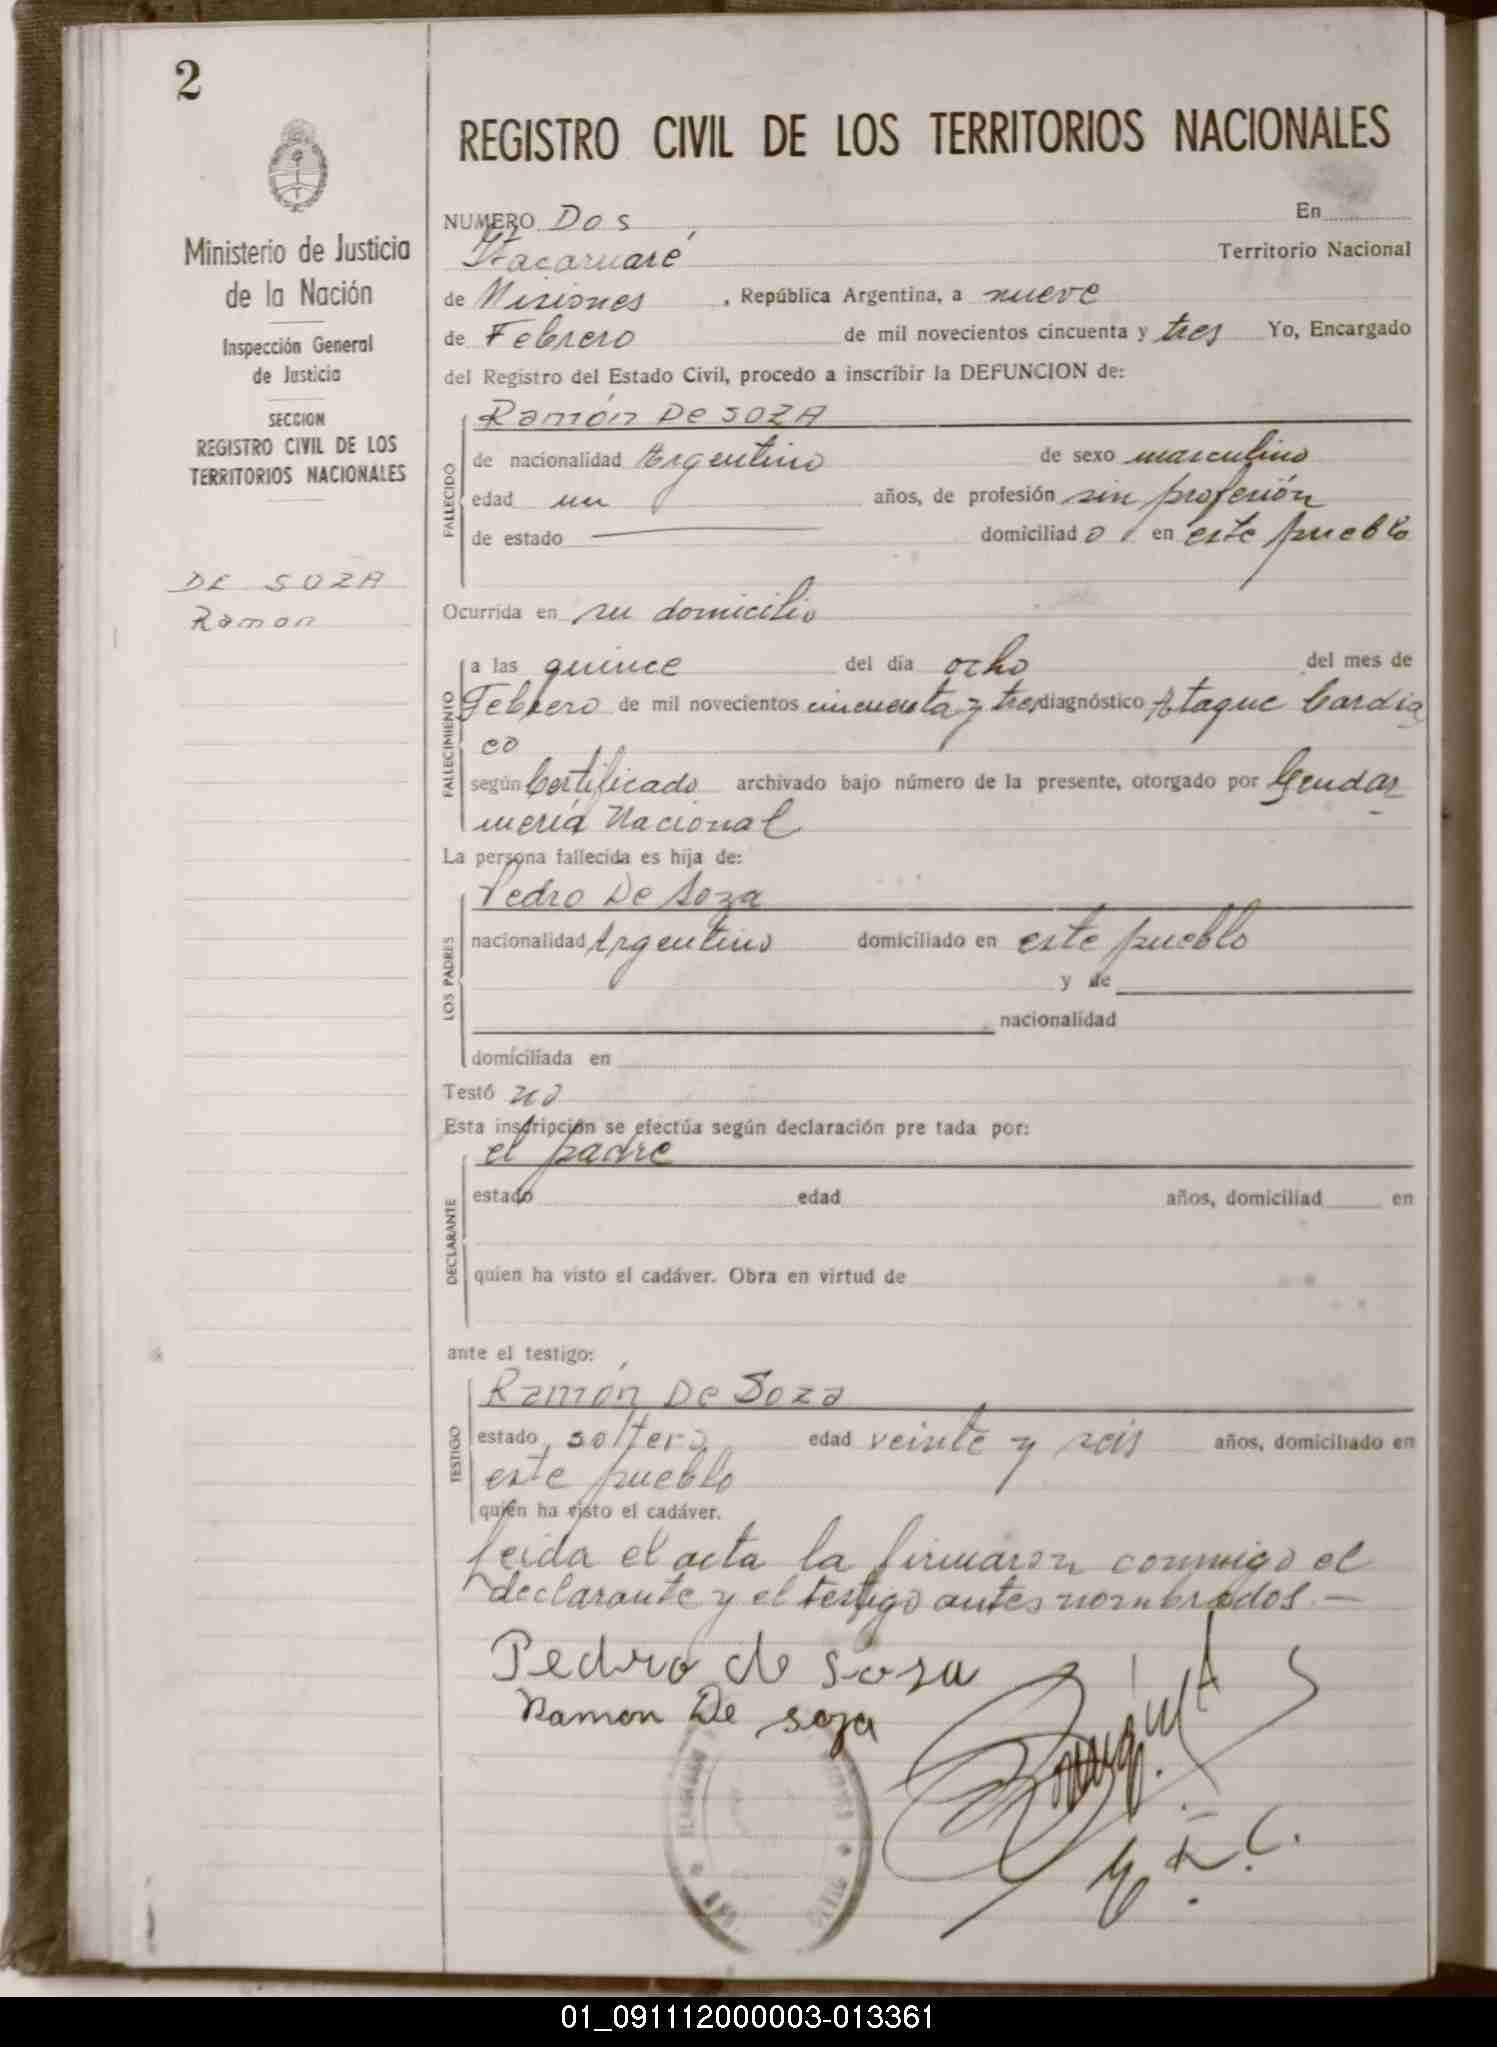 2
Ministerio de Justicia
de la Nación
Inspección General
de Justicia
SECCION
REGISTRO CIVIL DE LOS
TERRITORIOS NACIONALES
DE SOZA
Ramon
REGISTRO CIVIL DE LOS TERRITORIOS NACIONALES
NUMERO Dos En
Itacaruaré Territorio Nacional
de Misiones , República Argentina, a nueve
de Febrero de mil novecientos cincuenta y tres Yo, Encargado
del Registro del Estado Civil, procedo a inscribir la DEFUNCION de:
FALLECIDO
Ramón De SOZA
de nacionalidad Argentino de sexo masculino
edad un años, de profesión sin profesión
de estado —— domiciliad o en este pueblo
Ocurrida en su domicilio
FALLECIMIENTO
a las quince del día ocho del mes de
Febrero de mil novecientos cincuenta y tres diagnóstico Ataque Cardia
co
según Certificado archivado bajo número de la presente, otorgado por Gendar
mería Nacional
La persona fallecida es hija de:
LOS PADRES
Pedro De Soza
nacionalidad Argentino domiciliado en este pueblo
y de
, nacionalidad
domiciliada en
Testó no
Esta inscripción se efectúa según declaración pre tada por:
DECLARANTE
el padre
estado edad años, domiciliad en
quien ha visto el cadáver. Obra en virtud de
ante el testigo:
TESTIGO
Ramón De Soza
estado soltero edad veinte y seis años, domiciliado en
este pueblo
quién ha visto el cadáver.
Leida el acta la firmaron conmigo el
declarante y el testigo antes nombrados.—
Pedro de Soza
Ramon De soza
01_091112000003-013361